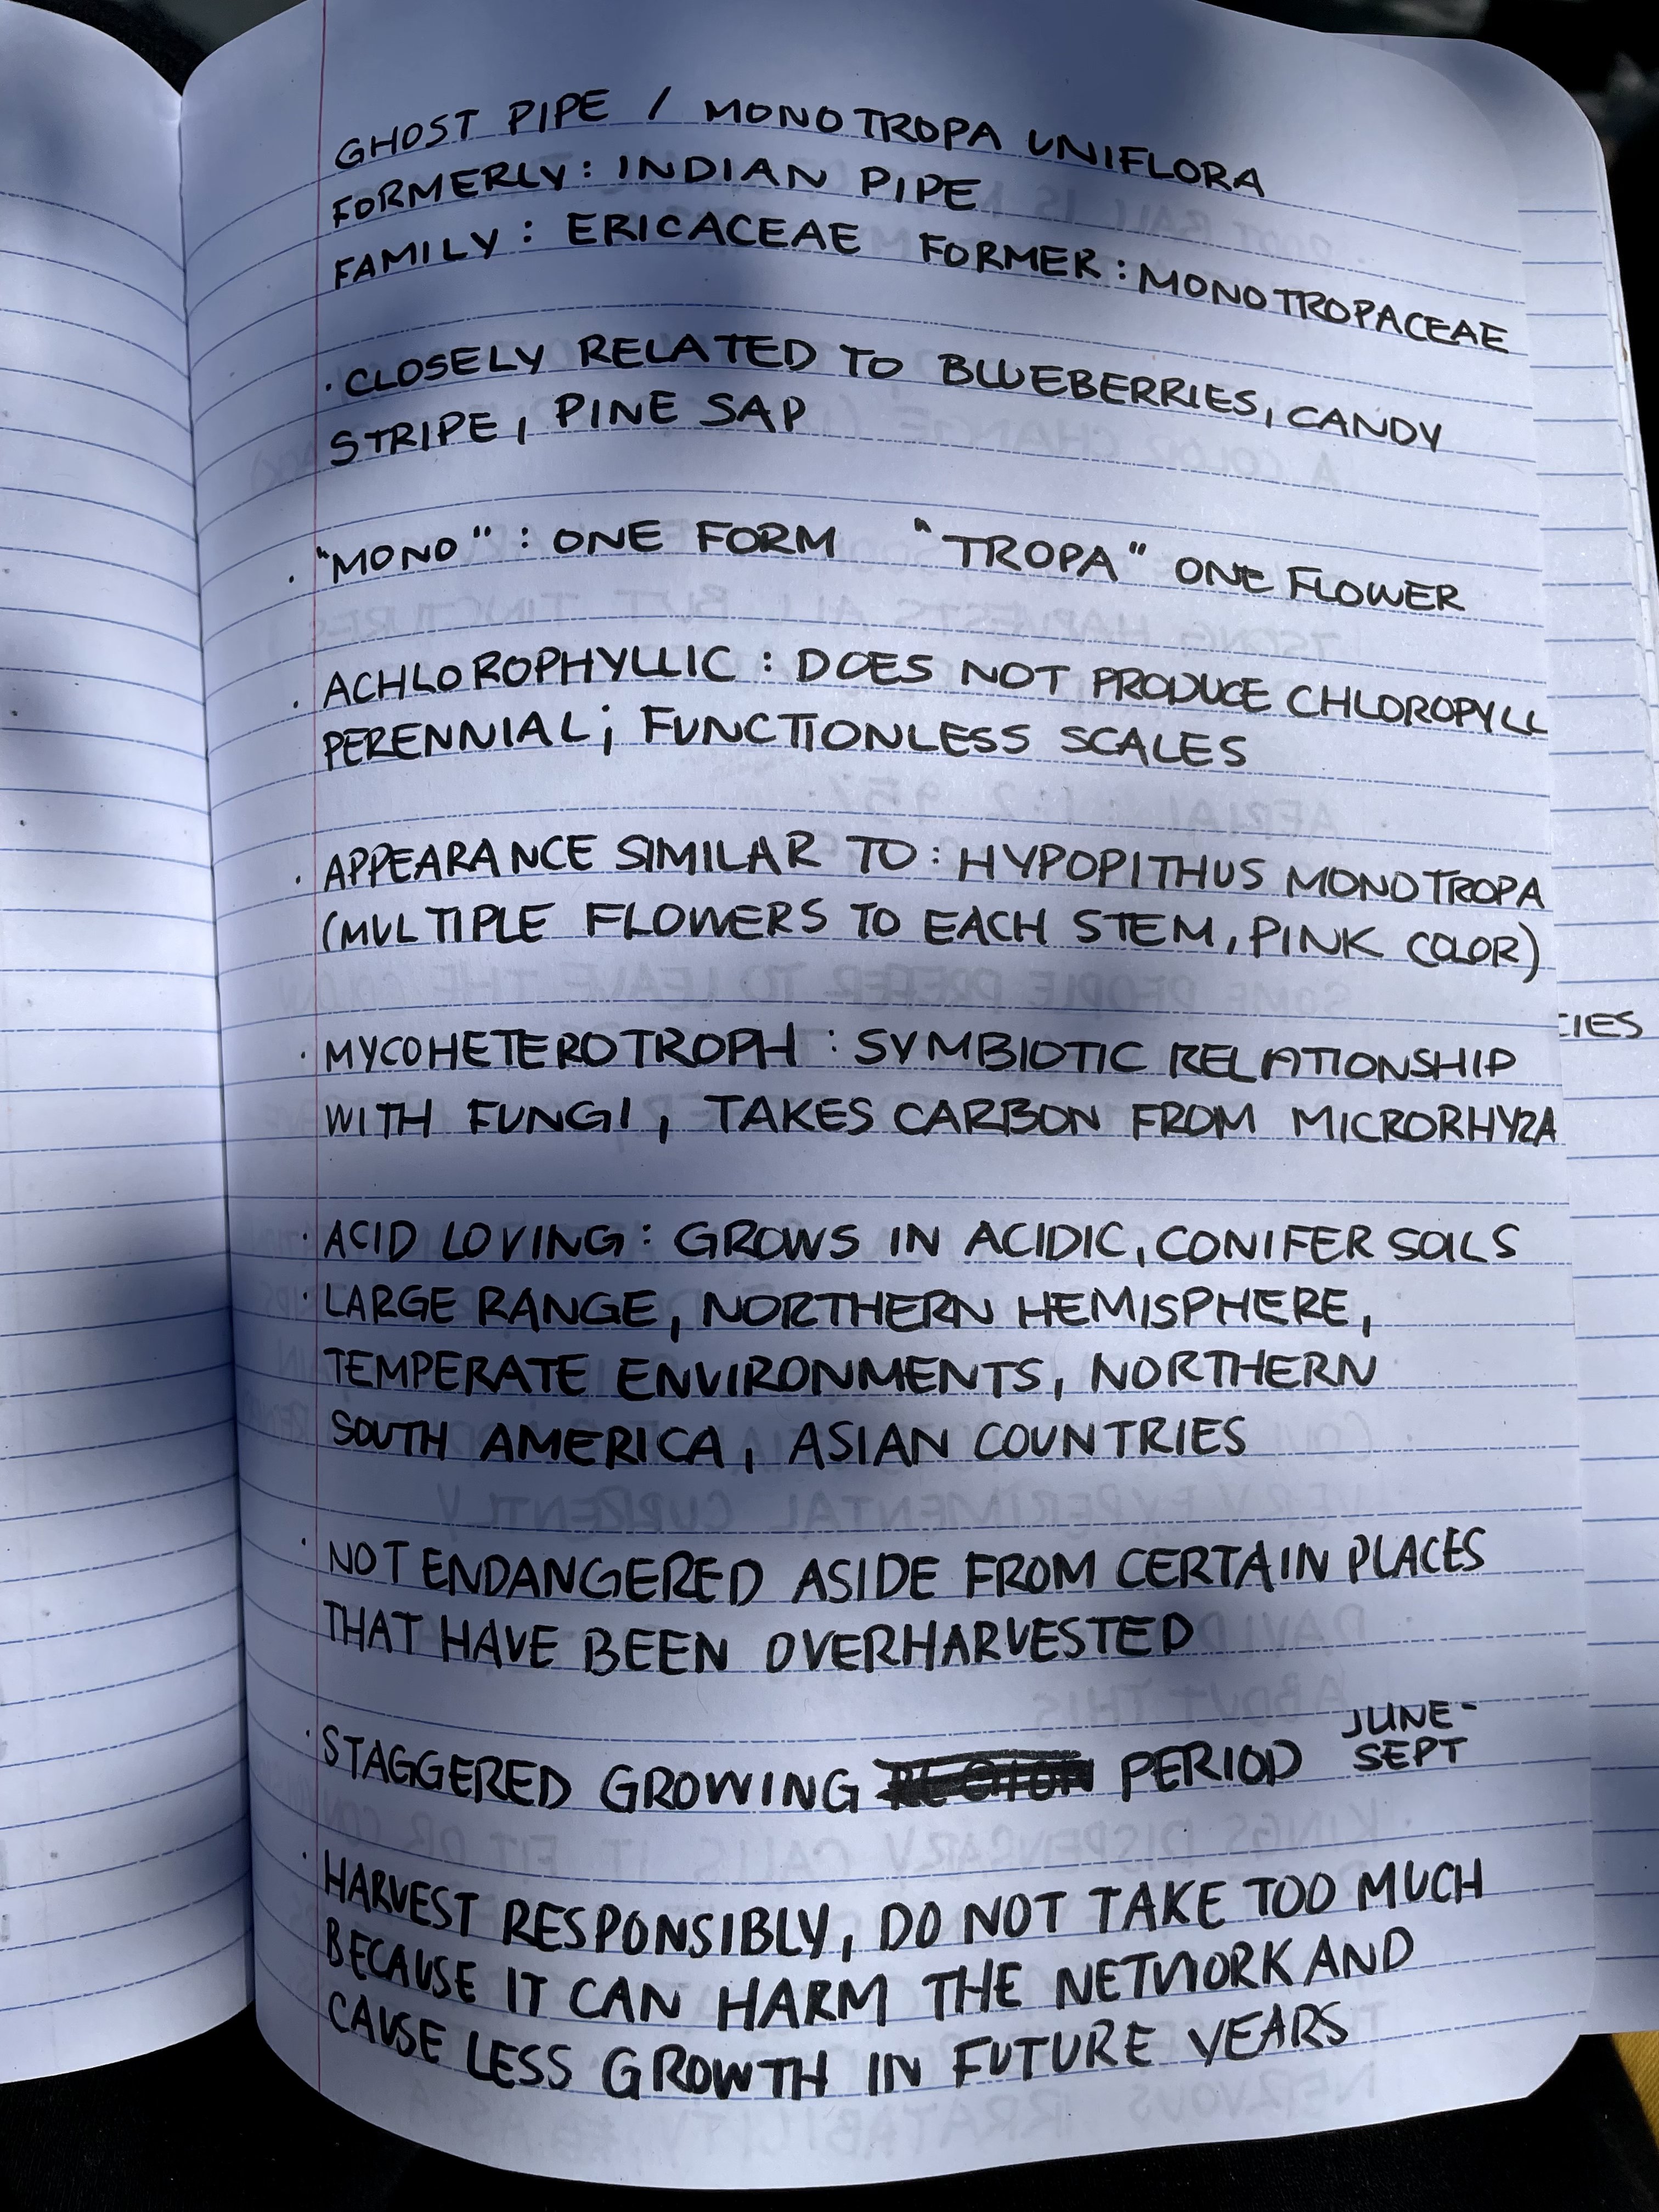 GHOST PIPE / MONOTROPA UNIFLORA
FORMERLY: INDIAN PIPE
FAMILY: ERICACEAE FORMER: MONOTROPACEAE
· CLOSELY RELATED TO BLUEBERRIES, CANDY
STRIPE, PINE SAP
· "MONO": ONE FORM "TROPA" ONE FLOWER
· ACHLOROPHYLLIC: DOES NOT PRODUCE CHLOROPYLL
PERENNIAL; FUNCTIONLESS SCALES
· APPEARANCE SIMILAR TO: HYPOPITHUS MONOTROPA
(MULTIPLE FLOWERS TO EACH STEM, PINK COLOR)
· MYCOHETEROTROPH: SYMBIOTIC RELATIONSHIP
WITH FUNGI, TAKES CARBON FROM MICRORHYZA
· ACID LOVING: GROWS IN ACIDIC, CONIFER SOILS
· LARGE RANGE, NORTHERN HEMISPHERE,
TEMPERATE ENVIRONMENTS, NORTHERN
SOUTH AMERICA, ASIAN COUNTRIES
· NOT ENDANGERED ASIDE FROM CERTAIN PLACES
THAT HAVE BEEN OVERHARVESTED
· STAGGERED GROWING PERIOD JUNE-
SEPT
· HARVEST RESPONSIBLY, DO NOT TAKE TOO MUCH
BECAUSE IT CAN HARM THE NETWORK AND
CAUSE LESS GROWTH IN FUTURE YEARS